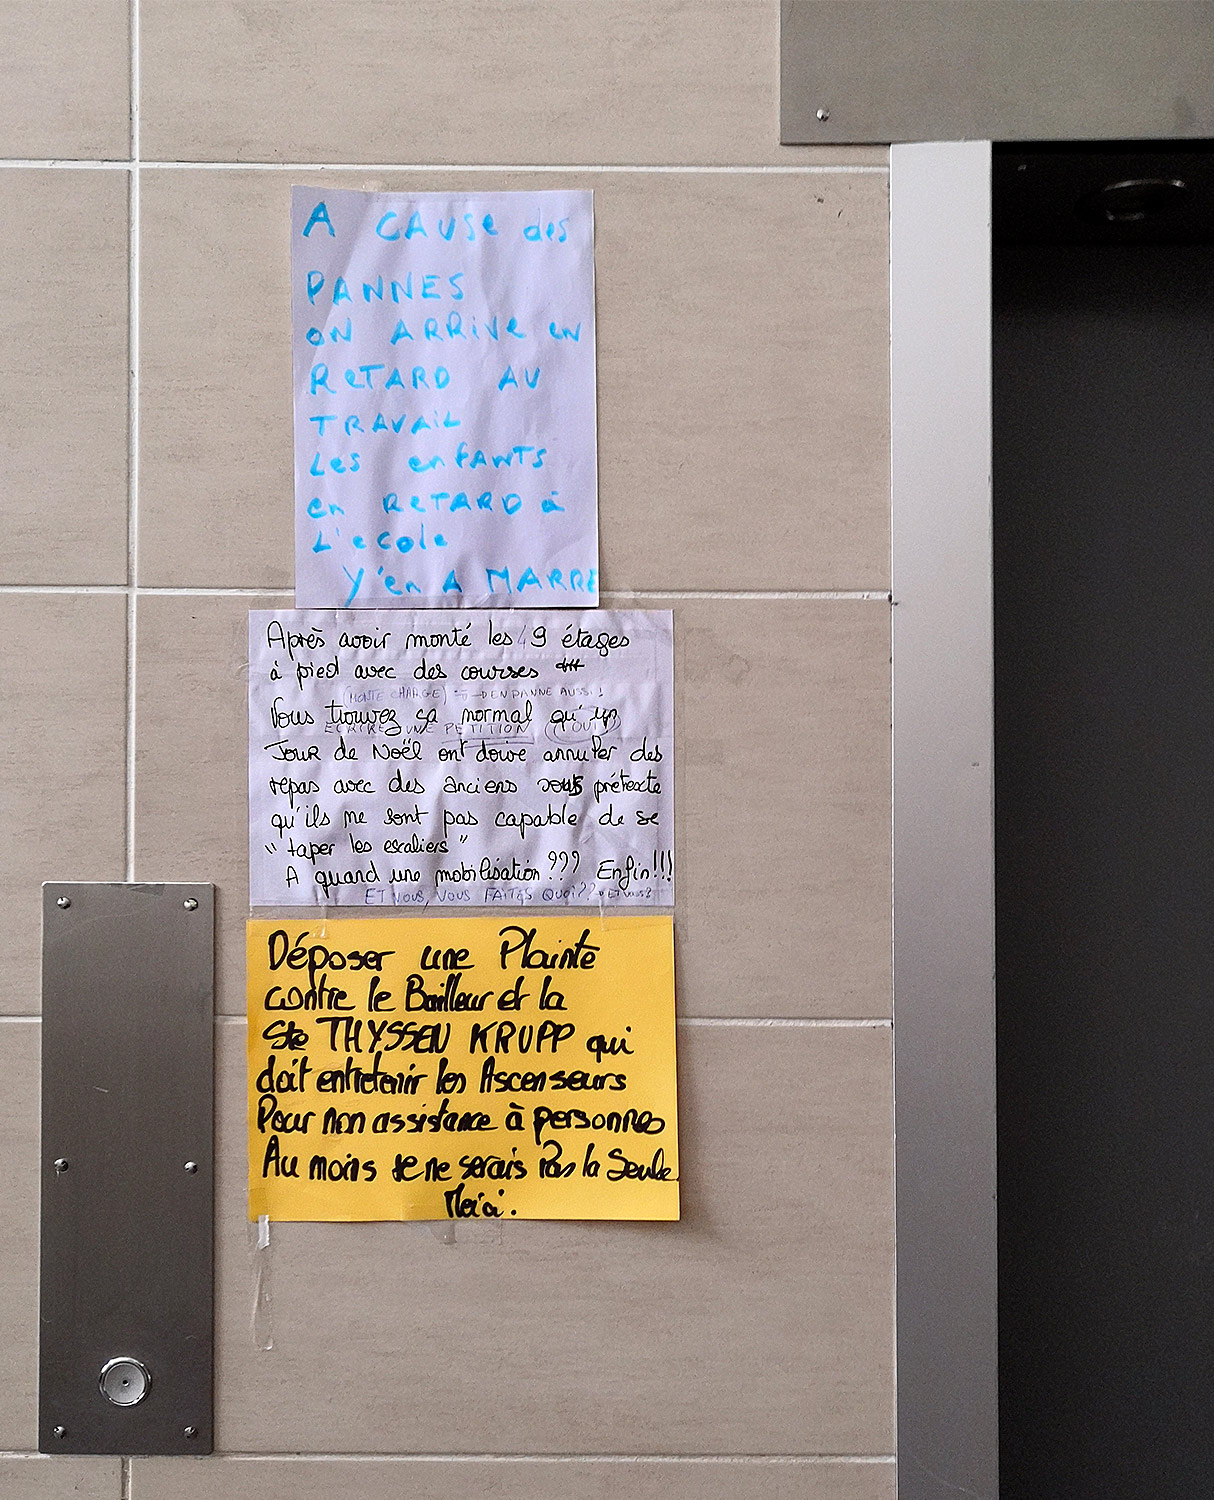 A CAUSE des
PANNES
ON ARRIVE EN
RETARD AU
TRAVAIL
LES enfANTS
en RETARD à
L'ecole
Y'en A MARRE
Après avoir monté les 9 étages
à pied avec des courses
(MONTE CHARGE) EN PANNE AUSSI!
Vous trouvez ça normal qu'un
ECRIRE UNE PETITION (OUI)
Jour de Noël ont doive annuler des
repas avec des anciens sous prétexte
qu'ils ne sont pas capable de se
"taper les escaliers"
A quand une mobilisation ??? Enfin!!!
ET VOUS, VOUS FAITES QUOI??
Déposer une Plainte
contre le Bailleur et la
Ste THYSSEN KRUPP qui
doit entretenir les Ascenseurs
Pour non assistance à personnes
Au moins je ne serais Pas la Seule
Merci.